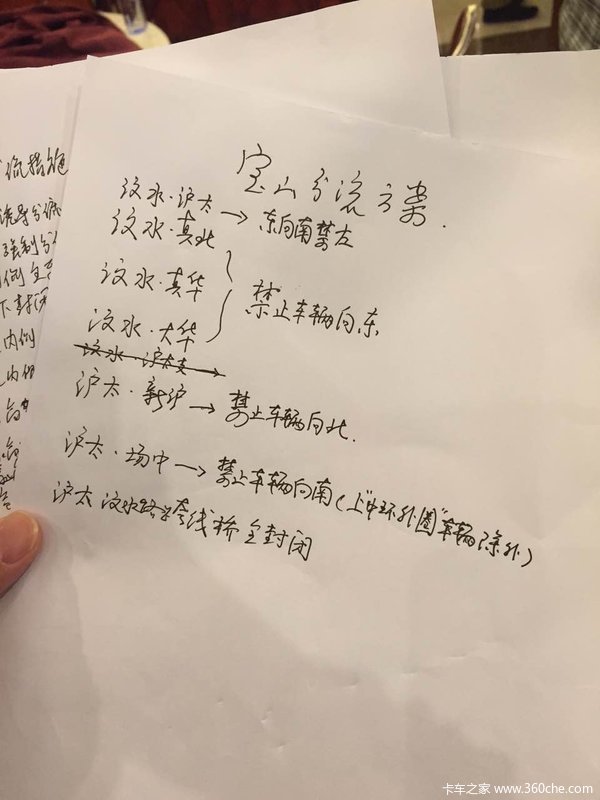 宝山分流方案.
汶水·沪太 → 东向南禁左
汶水·真北
汶水·真华 禁止车辆向东
汶水·大华
汶水·沪太支
沪太·新沪 → 禁止车辆向北.
沪太·场中 → 禁止车辆向南(上"中环外圈"车辆除外)
沪太汶水路跨线桥全封闭
流措施
强制分
卡车之家 www.360che.com